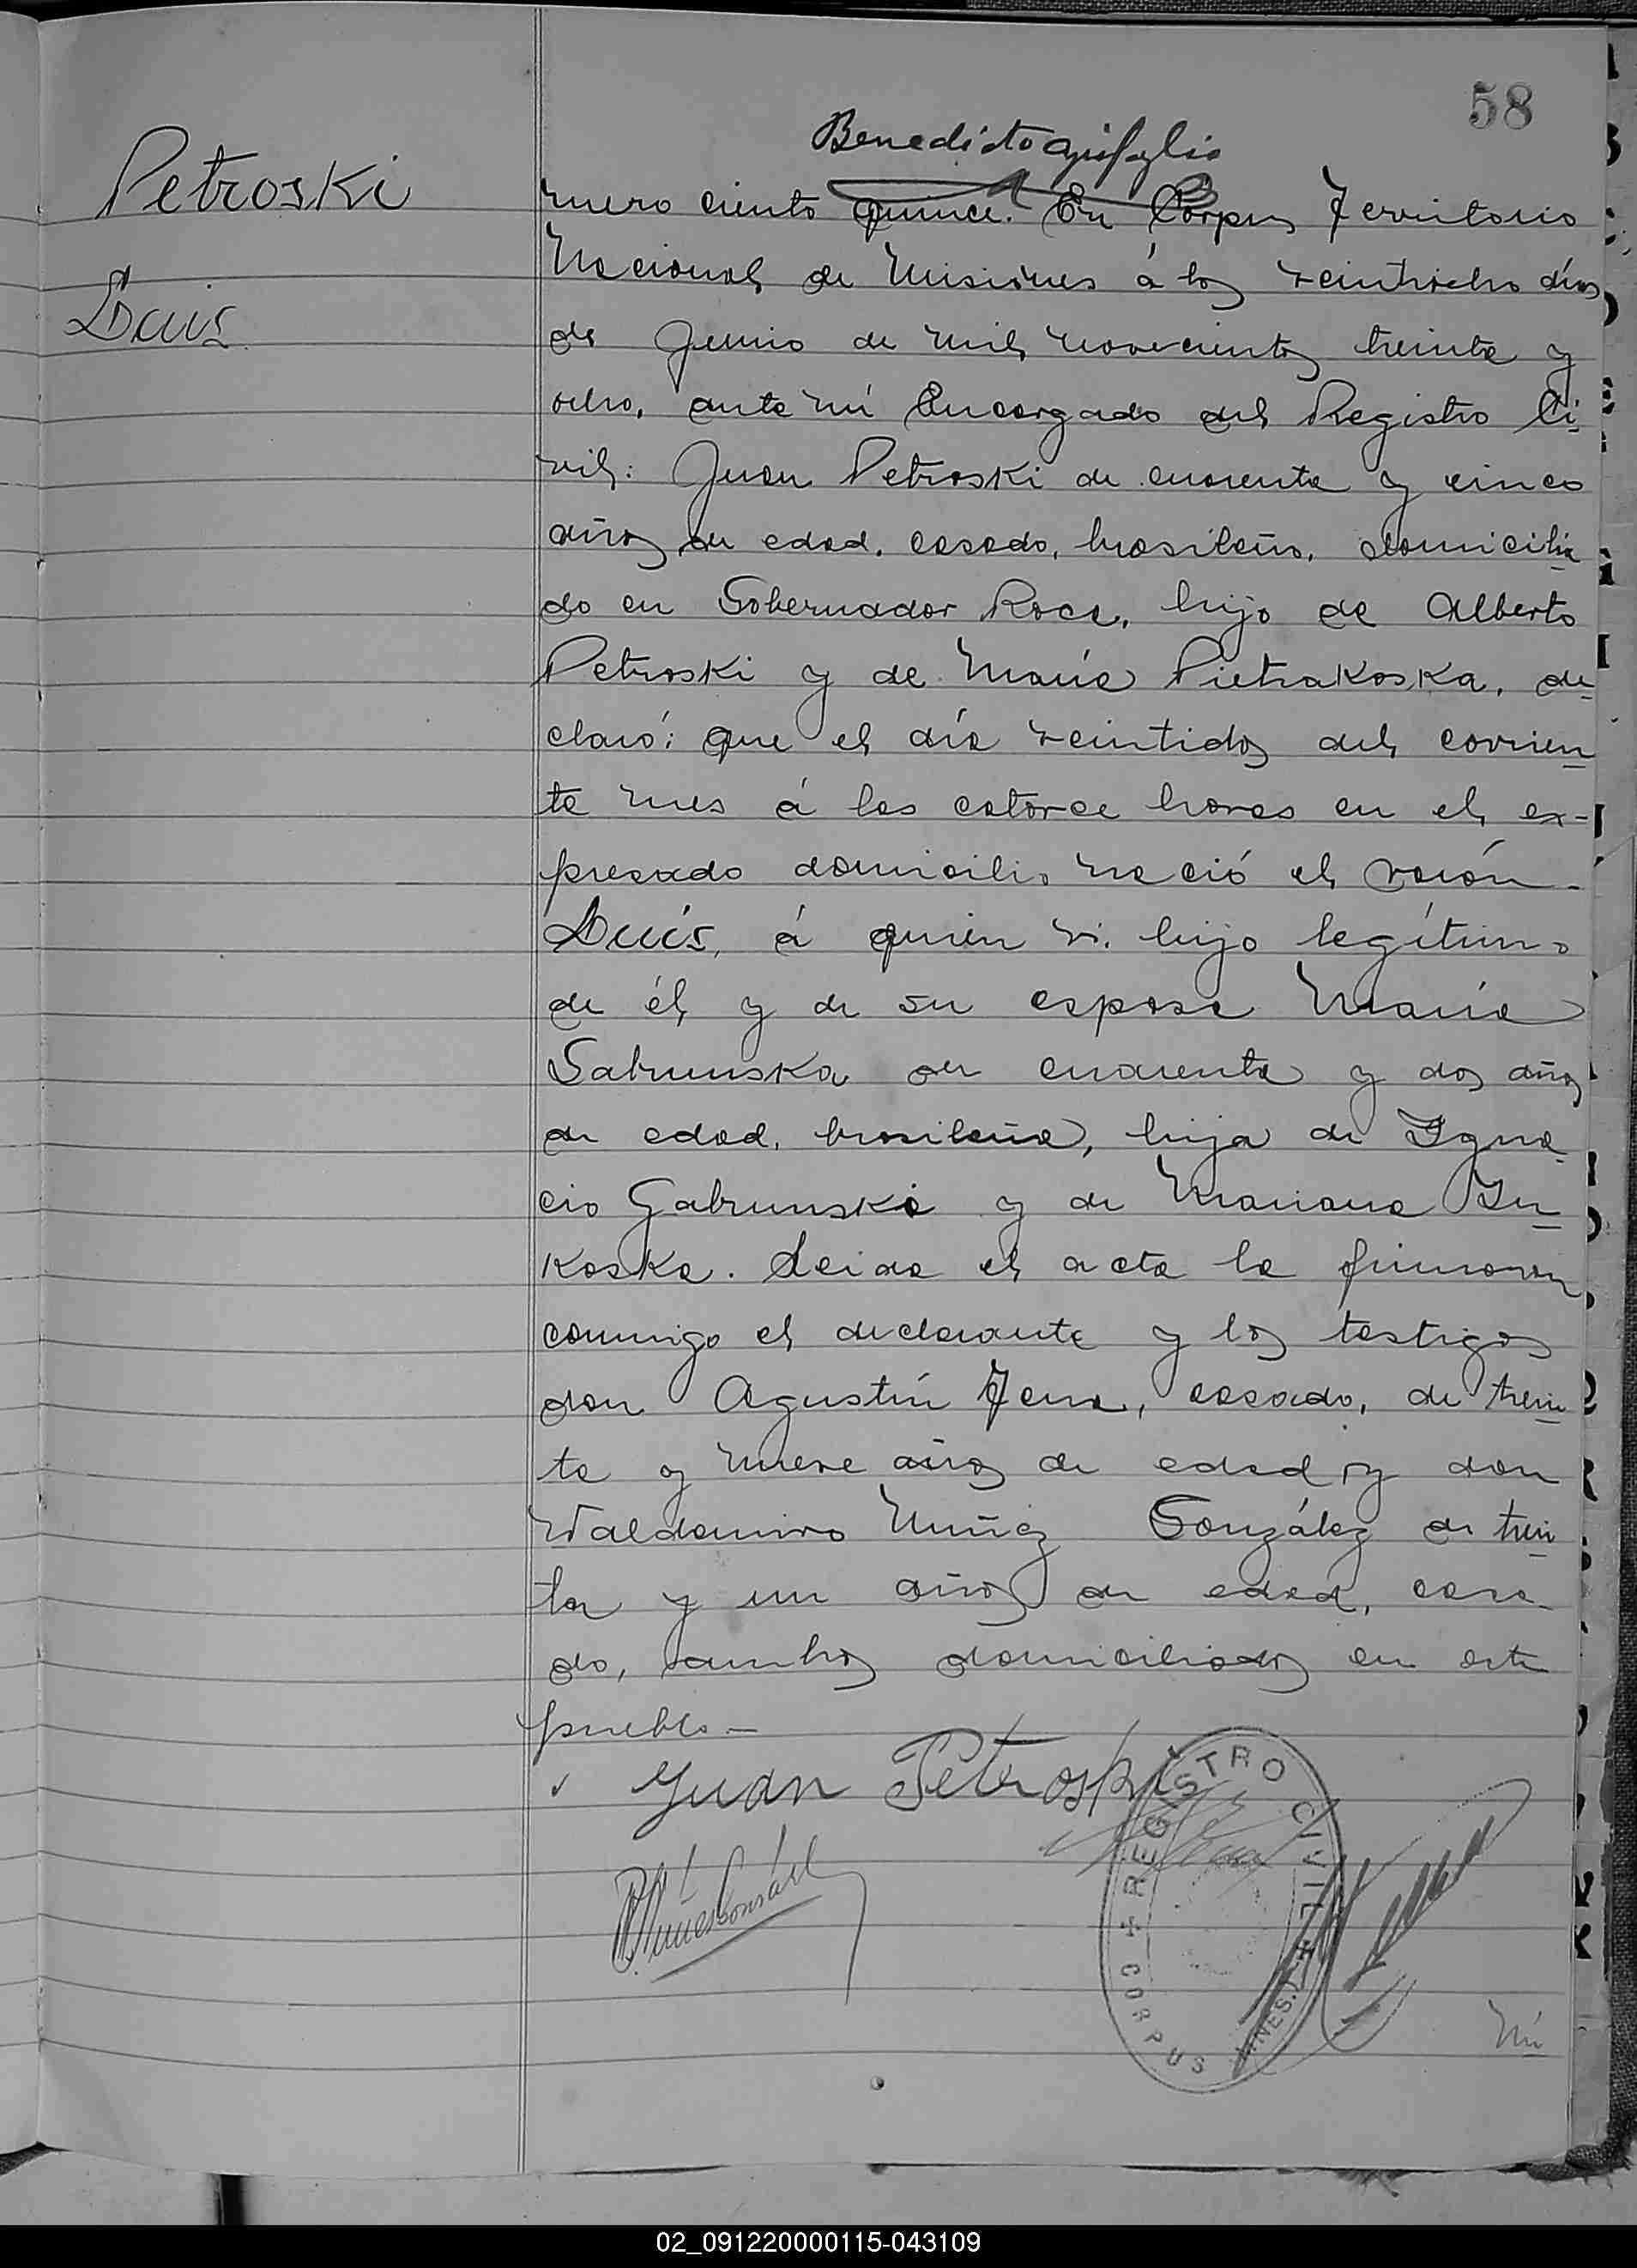 58
Benedicto
Petroski
Luis
mero ciento quince. En Corpus Territorio
Nacional de Misiones á los veintiocho días
de Junio de mil novecientos treinta y
ocho, ante mí Encargado del Registro Ci-
vil: Juan Petroski de cuarenta y cinco
años de edad, casado, brasileño, domicilia
do en Gobernador Roca, hijo de Alberto
Petroski y de María Pietrakoska, de-
claró: que el día veintidos del corrien
te mes á las catorce horas en el ex-
presado domicilio nació el varón
Luis, á quien vi. hijo legítimo
de él y de su esposa María
Gabrunska de cuarenta y dos años
de edad, brasileña, hija de Igna-
cio Gabrunski y de Mariana
koska. Leida el acta la firmaron
conmigo el declarante y los testigos
don Agustín, casado, de trein
ta y nueve años de edad y don
Waldomiro Nuñez González de trein
ta y un años de edad, casa-
do, ambos domiciliados en este
pueblo —
Juan Petroski
REGISTRO CIVIL
CORPUS MNES.
Nú
02_091220000115-043109